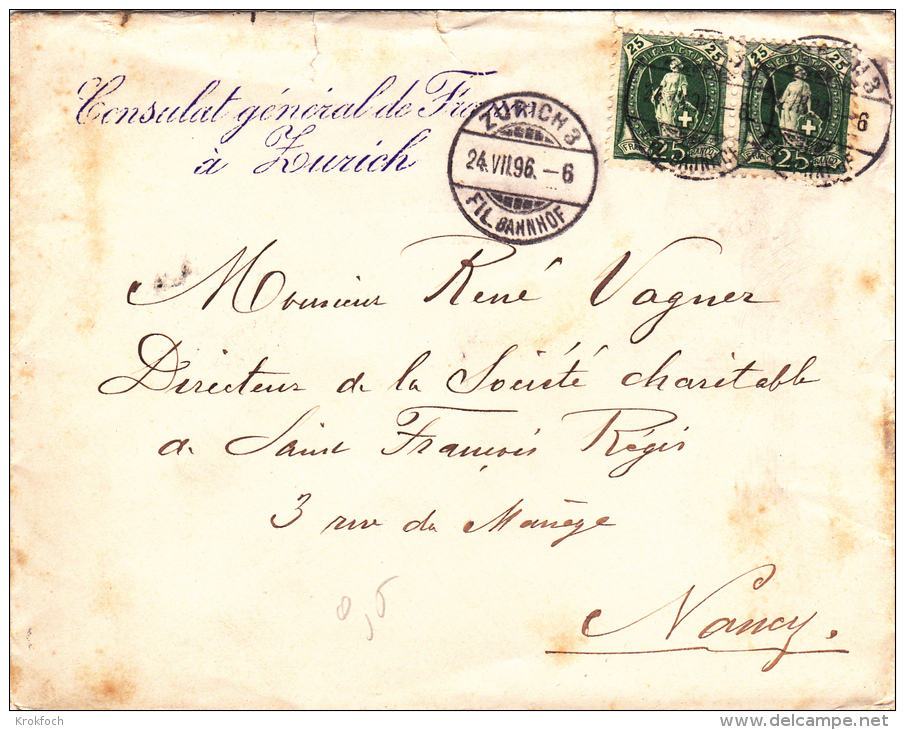 Consulat général de France
à Zurich
ZÜRICH 3
24.VII.96.-6
FIL. BAHNHOF
25 HELVETIA 25
FRANCO 25
25 HELVETIA 25
FRANCO 25
Monsieur René Vagner
Directeur de la Société charitable
de Saint François Régis
3 rue du Manège
Nancy.
0,5
Krokfoch
www.delcampe.net